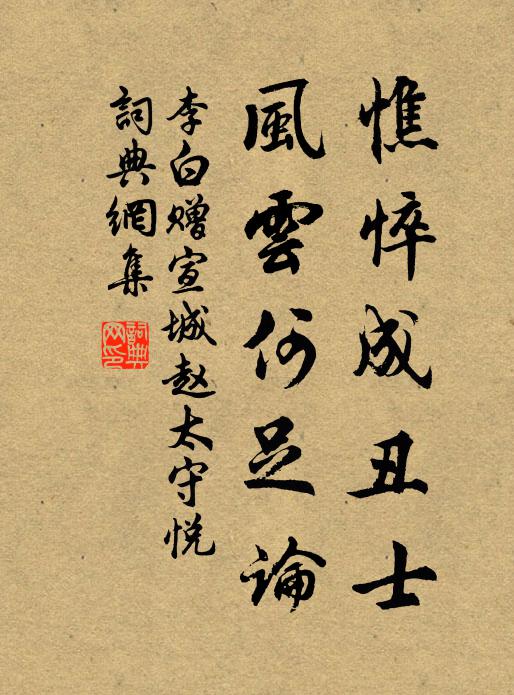 憔悴成丑士
風雲何足論
李白赠宣城赵太守悦
詞典網集
詞典網印